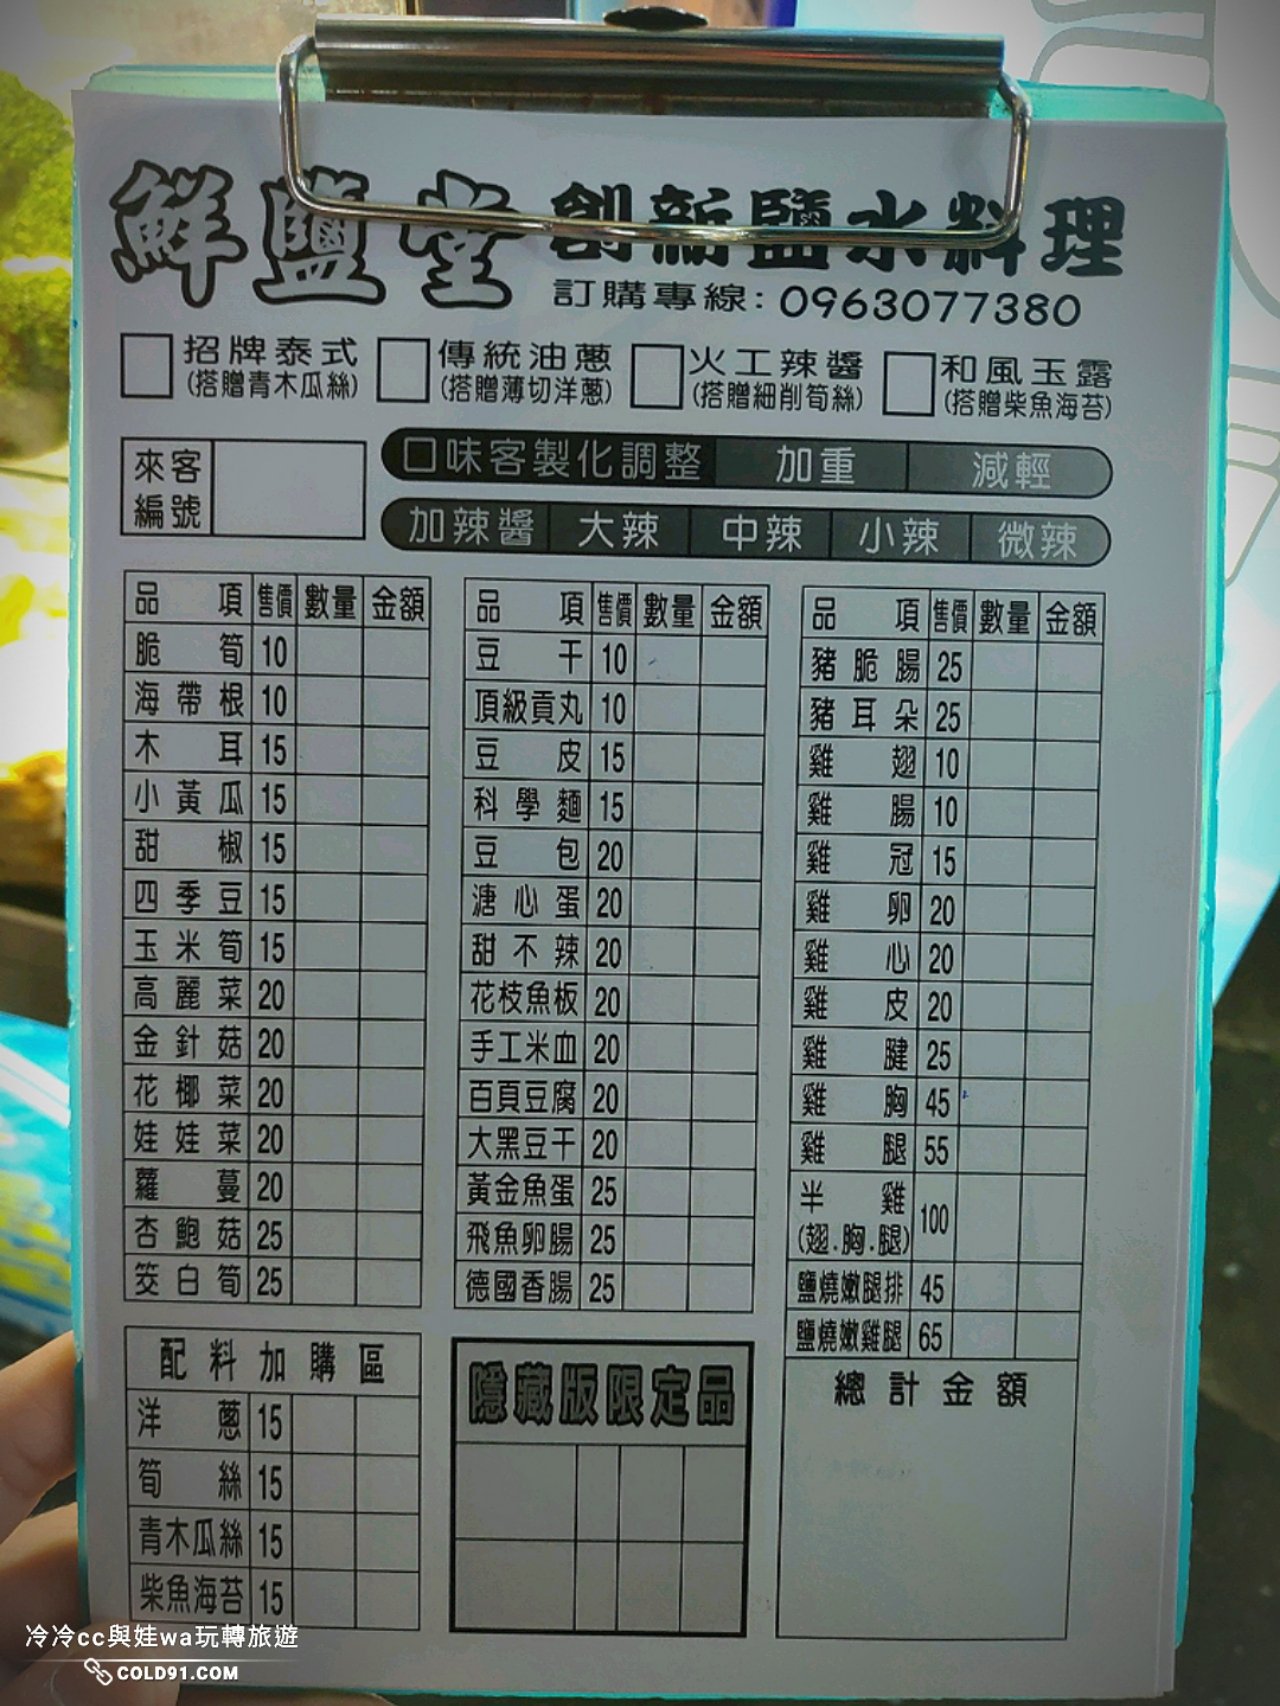 鮮鹽堂 創新鹽水料理
訂購專線：0963077380
招牌泰式 傳統油蔥 火工辣醬 和風玉露
(搭贈青木瓜絲) (搭贈薄切洋蔥) (搭贈細削筍絲) (搭贈柴魚海苔)
來客編號
口味客製化調整 加重 減輕
加辣醬 大辣 中辣 小辣 微辣
品項 售價 數量 金額
脆筍 10
海帶根 10
木耳 15
小黃瓜 15
甜椒 15
四季豆 15
玉米筍 15
高麗菜 20
金針菇 20
花椰菜 20
娃娃菜 20
蘿蔓 20
杏鮑菇 25
筊白筍 25
配料加購區
洋蔥 15
筍絲 15
青木瓜絲 15
柴魚海苔 15
品項 售價 數量 金額
豆干 10
頂級貢丸 10
豆皮 15
科學麵 15
豆包 20
溏心蛋 20
甜不辣 20
花枝魚板 20
手工米血 20
百頁豆腐 20
大黑豆干 20
黃金魚蛋 25
飛魚卵腸 25
德國香腸 25
隱藏版限定品
品項 售價 數量 金額
豬脆腸 25
豬耳朵 25
雞翅 10
雞腸 10
雞冠 15
雞卵 20
雞心 20
雞皮 20
雞腱 25
雞胸 45
雞腿 55
半雞 100
(翅.胸.腿)
鹽燒嫩腿排 45
鹽燒嫩雞腿 65
總計金額
冷冷cc與娃wa玩轉旅遊
COLD91.COM